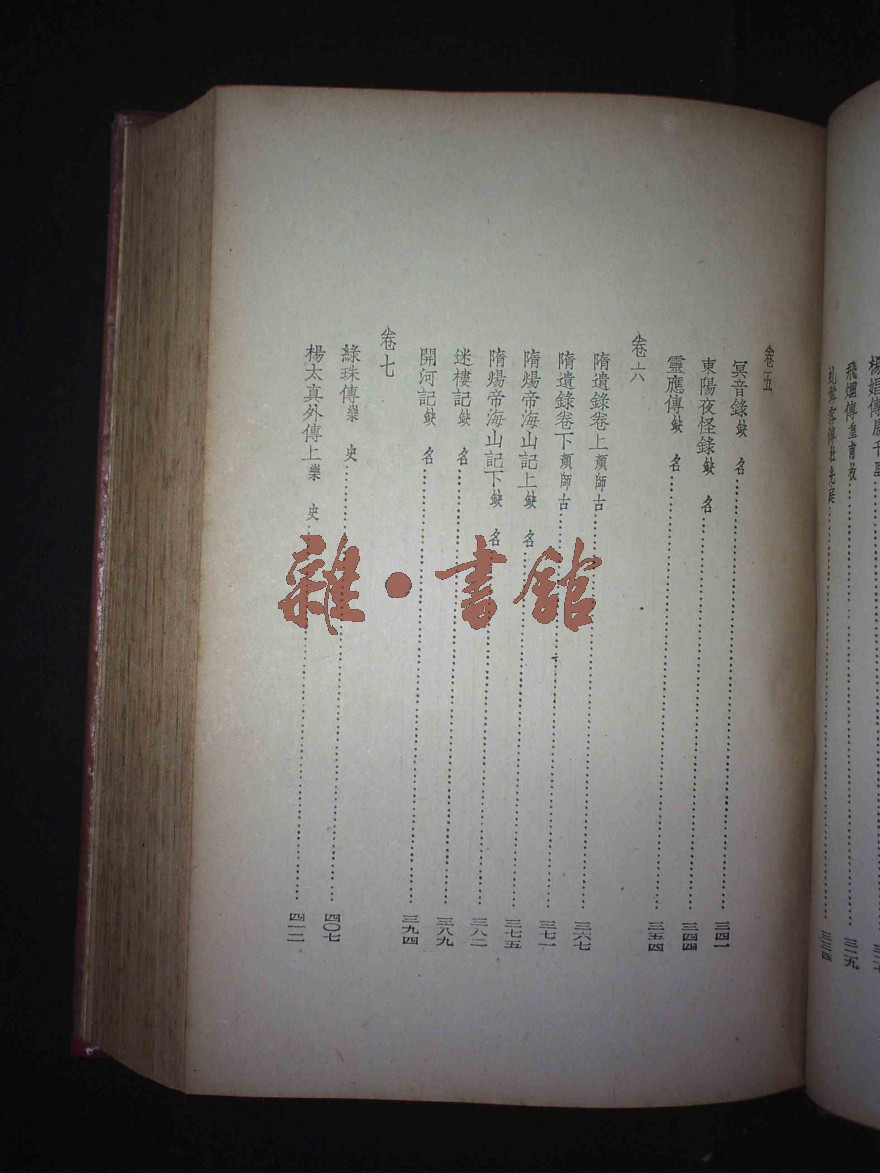 楊娼傳房千里
飛煙傳皇甫枚………三二九
虬髯客傳杜光庭………三三四
卷五
冥音錄缺 名………三四一
東陽夜怪錄缺 名………三四四
靈應傳缺 名………三五四
卷六
隋遺錄卷上顏師古………三六七
隋遺錄卷下顏師古………三七一
隋煬帝海山記上缺 名………三七五
隋煬帝海山記下缺 名………三八二
迷樓記缺 名………三八九
開河記缺 名………三九四
卷七
綠珠傳樂 史………四〇七
楊太真外傳上樂 史………四一二
雜·書館